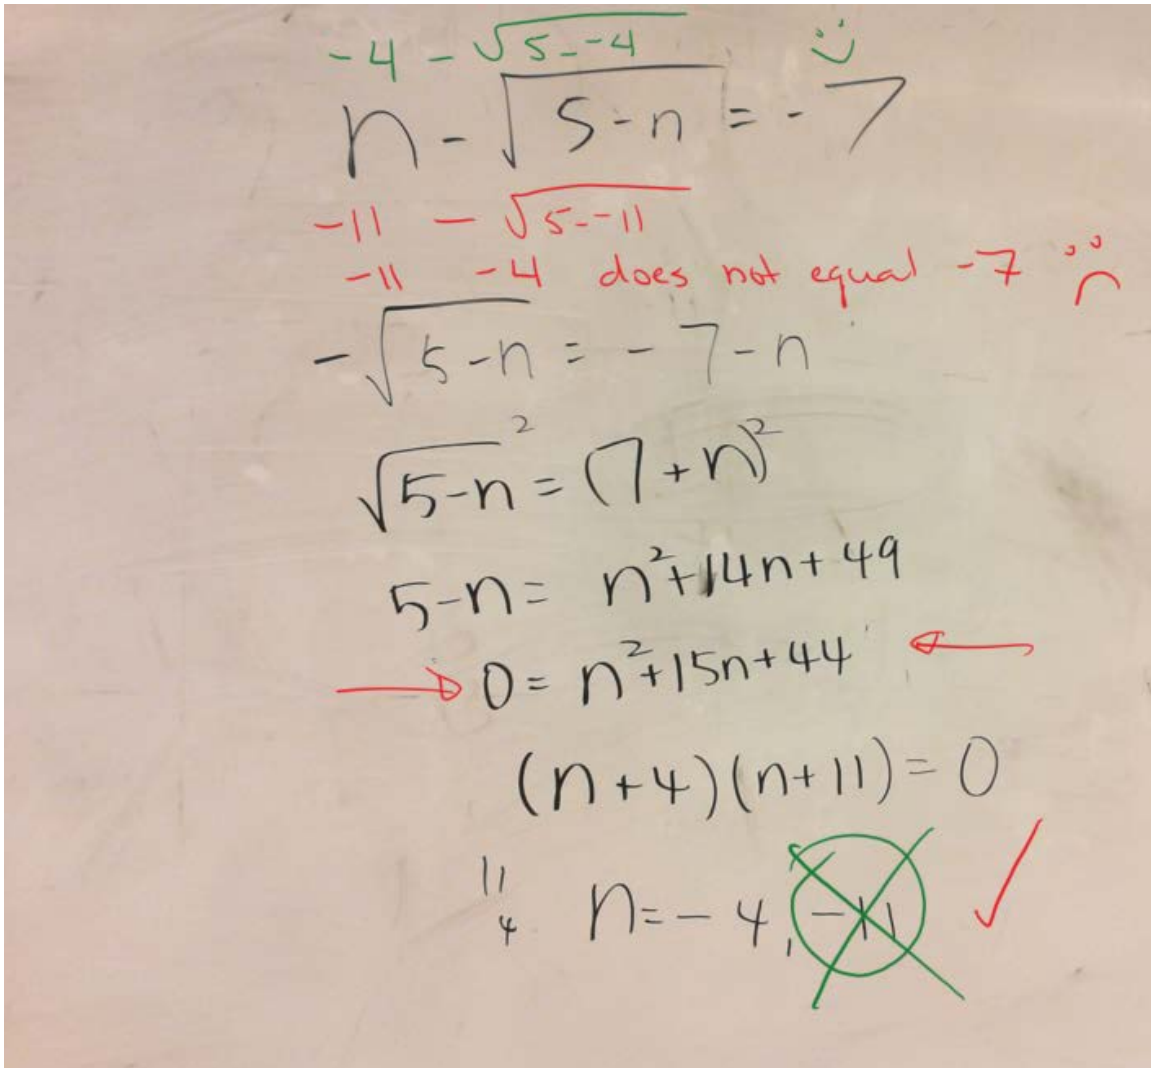 -4 - √5--4
n - √5-n = -7
-11 - √5--11
-11 -4 does not equal -7
-√5-n = -7-n
√5-n² = (7+n)²
5-n = n²+14n+49
0 = n²+15n+44
(n+4)(n+11) = 0
11
4
n = -4, -11